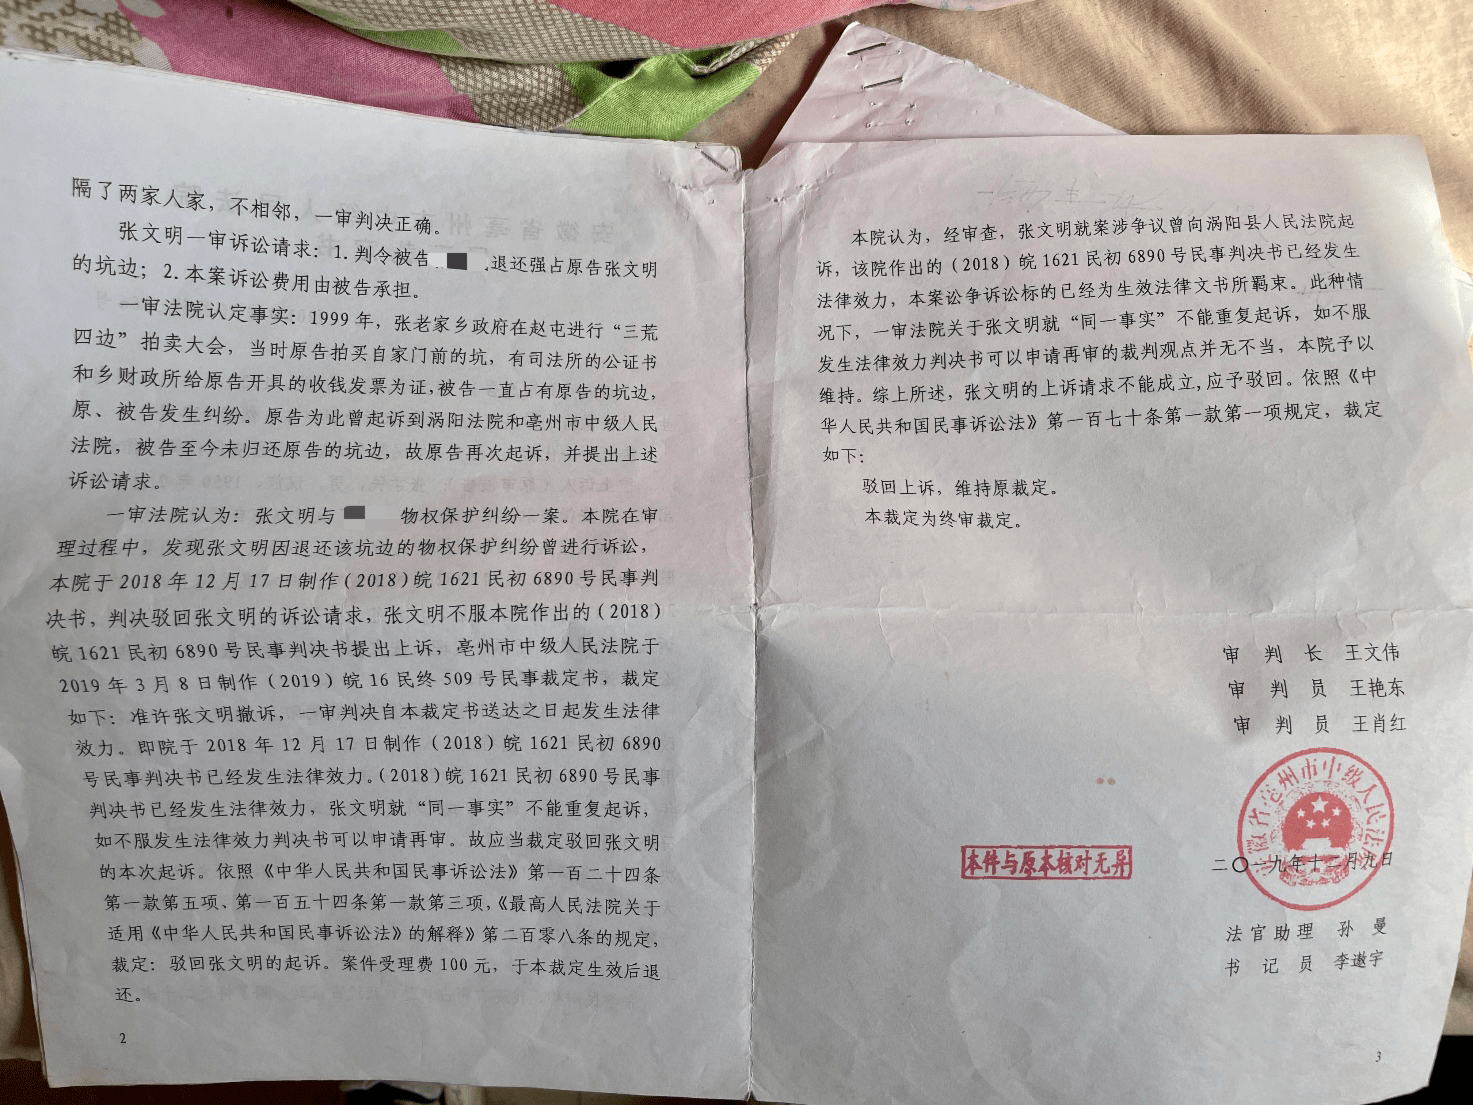 隔了两家人家，不相邻，一审判决正确。
张文明一审诉讼请求：1.判令被告退还强占原告张文明
的坑边；2.本案诉讼费用由被告承担。
一审法院认定事实：1999年，张老家乡政府在赵屯进行“三荒
四边”拍卖大会，当时原告拍买自家门前的坑，有司法所的公证书
和乡财政所给原告开具的收钱发票为证，被告一直占有原告的坑边，
原、被告发生纠纷。原告为此曾起诉到涡阳法院和亳州市中级人民
法院，被告至今未归还原告的坑边，故原告再次起诉，并提出上述
诉讼请求。
一审法院认为：张文明与 物权保护纠纷一案。本院在审
理过程中，发现张文明因退还该坑边的物权保护纠纷曾进行诉讼，
本院于2018年12月17日制作（2018）皖1621民初6890号民事判
决书，判决驳回张文明的诉讼请求，张文明不服本院作出的（2018）
皖1621民初6890号民事判决书提出上诉，亳州市中级人民法院于
2019年3月8日制作（2019）皖16民终509号民事裁定书，裁定
如下：准许张文明撤诉，一审判决自本裁定书送达之日起发生法律
效力。即院于2018年12月17日制作（2018）皖1621民初6890
号民事判决书已经发生法律效力。（2018）皖1621民初6890号民事
判决书已经发生法律效力，张文明就“同一事实”不能重复起诉，
如不服发生法律效力判决书可以申请再审。故应当裁定驳回张文明
的本次起诉。依照《中华人民共和国民事诉讼法》第一百二十四条
第一款第五项、第一百五十四条第一款第三项，《最高人民法院关于
适用《中华人民共和国民事诉讼法》的解释》第二百零八条的规定，
裁定：驳回张文明的起诉。案件受理费100元，于本裁定生效后退
还。
2
本院认为，经审查，张文明就案涉争议曾向涡阳县人民法院起
诉，该院作出的（2018）皖1621民初6890号民事判决书已经发生
法律效力，本案讼争诉讼标的已经为生效法律文书所羁束。此种情
况下，一审法院关于张文明就“同一事实”不能重复起诉，如不服
发生法律效力判决书可以申请再审的裁判观点并无不当，本院予以
维持。综上所述，张文明的上诉请求不能成立，应予驳回。依照《中
华人民共和国民事诉讼法》第一百七十条第一款第一项规定，裁定
如下：
驳回上诉，维持原裁定。
本裁定为终审裁定。
审 判 长 王文伟
审 判 员 王艳东
审 判 员 王肖红
安徽省亳州市中级人民法院
本件与原本核对无异
二〇一九年十二月九日
法官助理 孙 曼
书 记 员 李遨宇
3